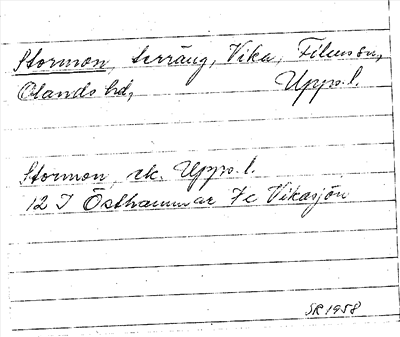 Stormon, terräng, Vika, Films sn,
Olands hd, Upps. l.
Stormon, sk. Upps. l.
12 I Östhammar 7c Vikasjön
SR 1958